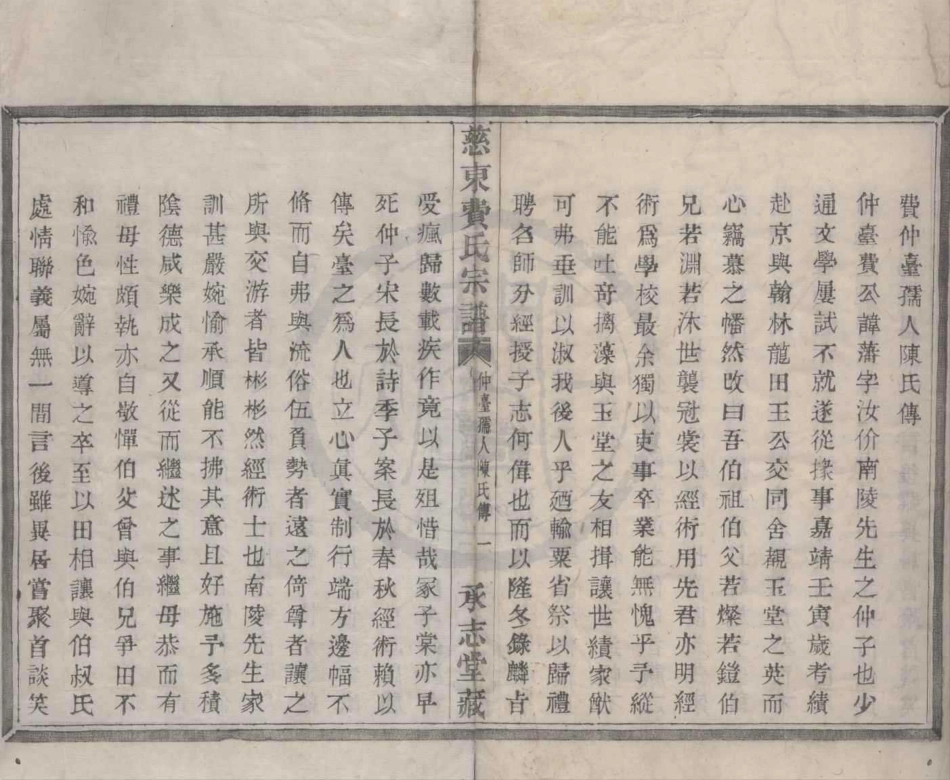 費仲臺孺人陳氏傳
仲臺費公諱藩字汝价南陵先生之仲子也少
通文學屢試不就遂從掾事嘉靖壬寅歲考績
赴京與翰林龍田王公交同舍覩玉堂之英而
心竊慕之幡然改曰吾伯祖伯父若燦若鎧伯
兄若淵若沐世襲冠裳以經術用先君亦明經
術爲學校最余獨以吏事卒業能無愧乎予縱
不能吐奇摛藻與玉堂之友相揖讓世績家猷
可弗垂訓以淑我後人乎廼輸粟省祭以歸禮
聘名師分經授子志何偉也而以隆冬錄麟
慈東費氏宗譜 仲臺孺人陳氏傳 一 承志堂藏
愛瘋歸數載疾作竟以是殂惜哉冢子棠亦早
死仲子宋長於詩季子案長於春秋經術賴以
傳矣臺之爲人也立心眞實制行端方邊幅不
脩而自弗與流俗伍負勢者遠之倚尊者讓之
所與交游者皆彬彬然經術士也南陵先生家
訓甚嚴婉愉承順能不拂其意且好施予多積
陰德咸樂成之又從而繼述之事繼母恭而有
禮母性頗執亦自敬憚伯父曾與伯兄爭田不
和愉色婉辭以導之卒至以田相讓與伯叔氏
處情聯義屬無一間言後雖異居嘗聚首談笑